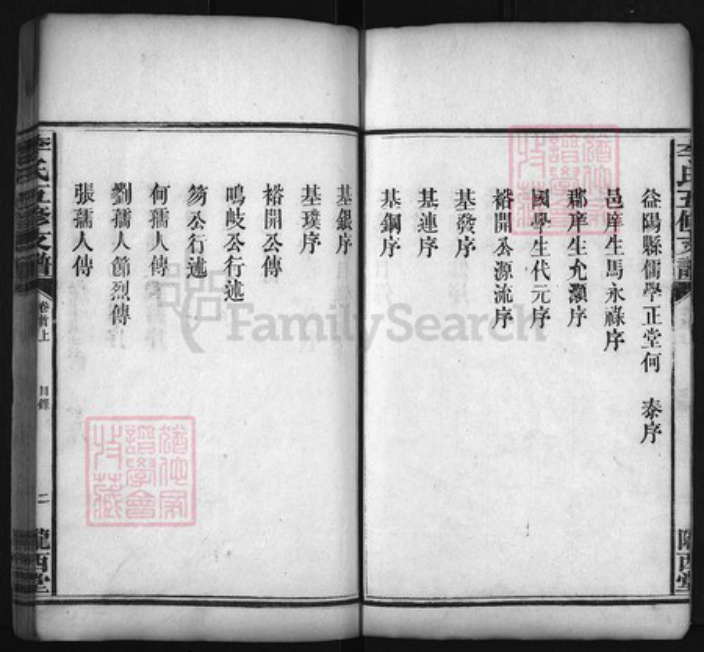 李氏五修支譜
隴西堂
益陽縣儒學正堂何 泰序
邑庠生馬永祿序
郡庠生允灝序
國學生代元序
裕開公源流序
基發序
基連序
基鋼序
基銀序
基璞序
裕開公傳
鳴岐公行述
芴公行述
何孺人傳
劉孺人節烈傳
張孺人傳
李氏五修支譜
卷首上
目錄
二
隴西堂
FamilySearch
譜學會
收藏
譜學會
收藏